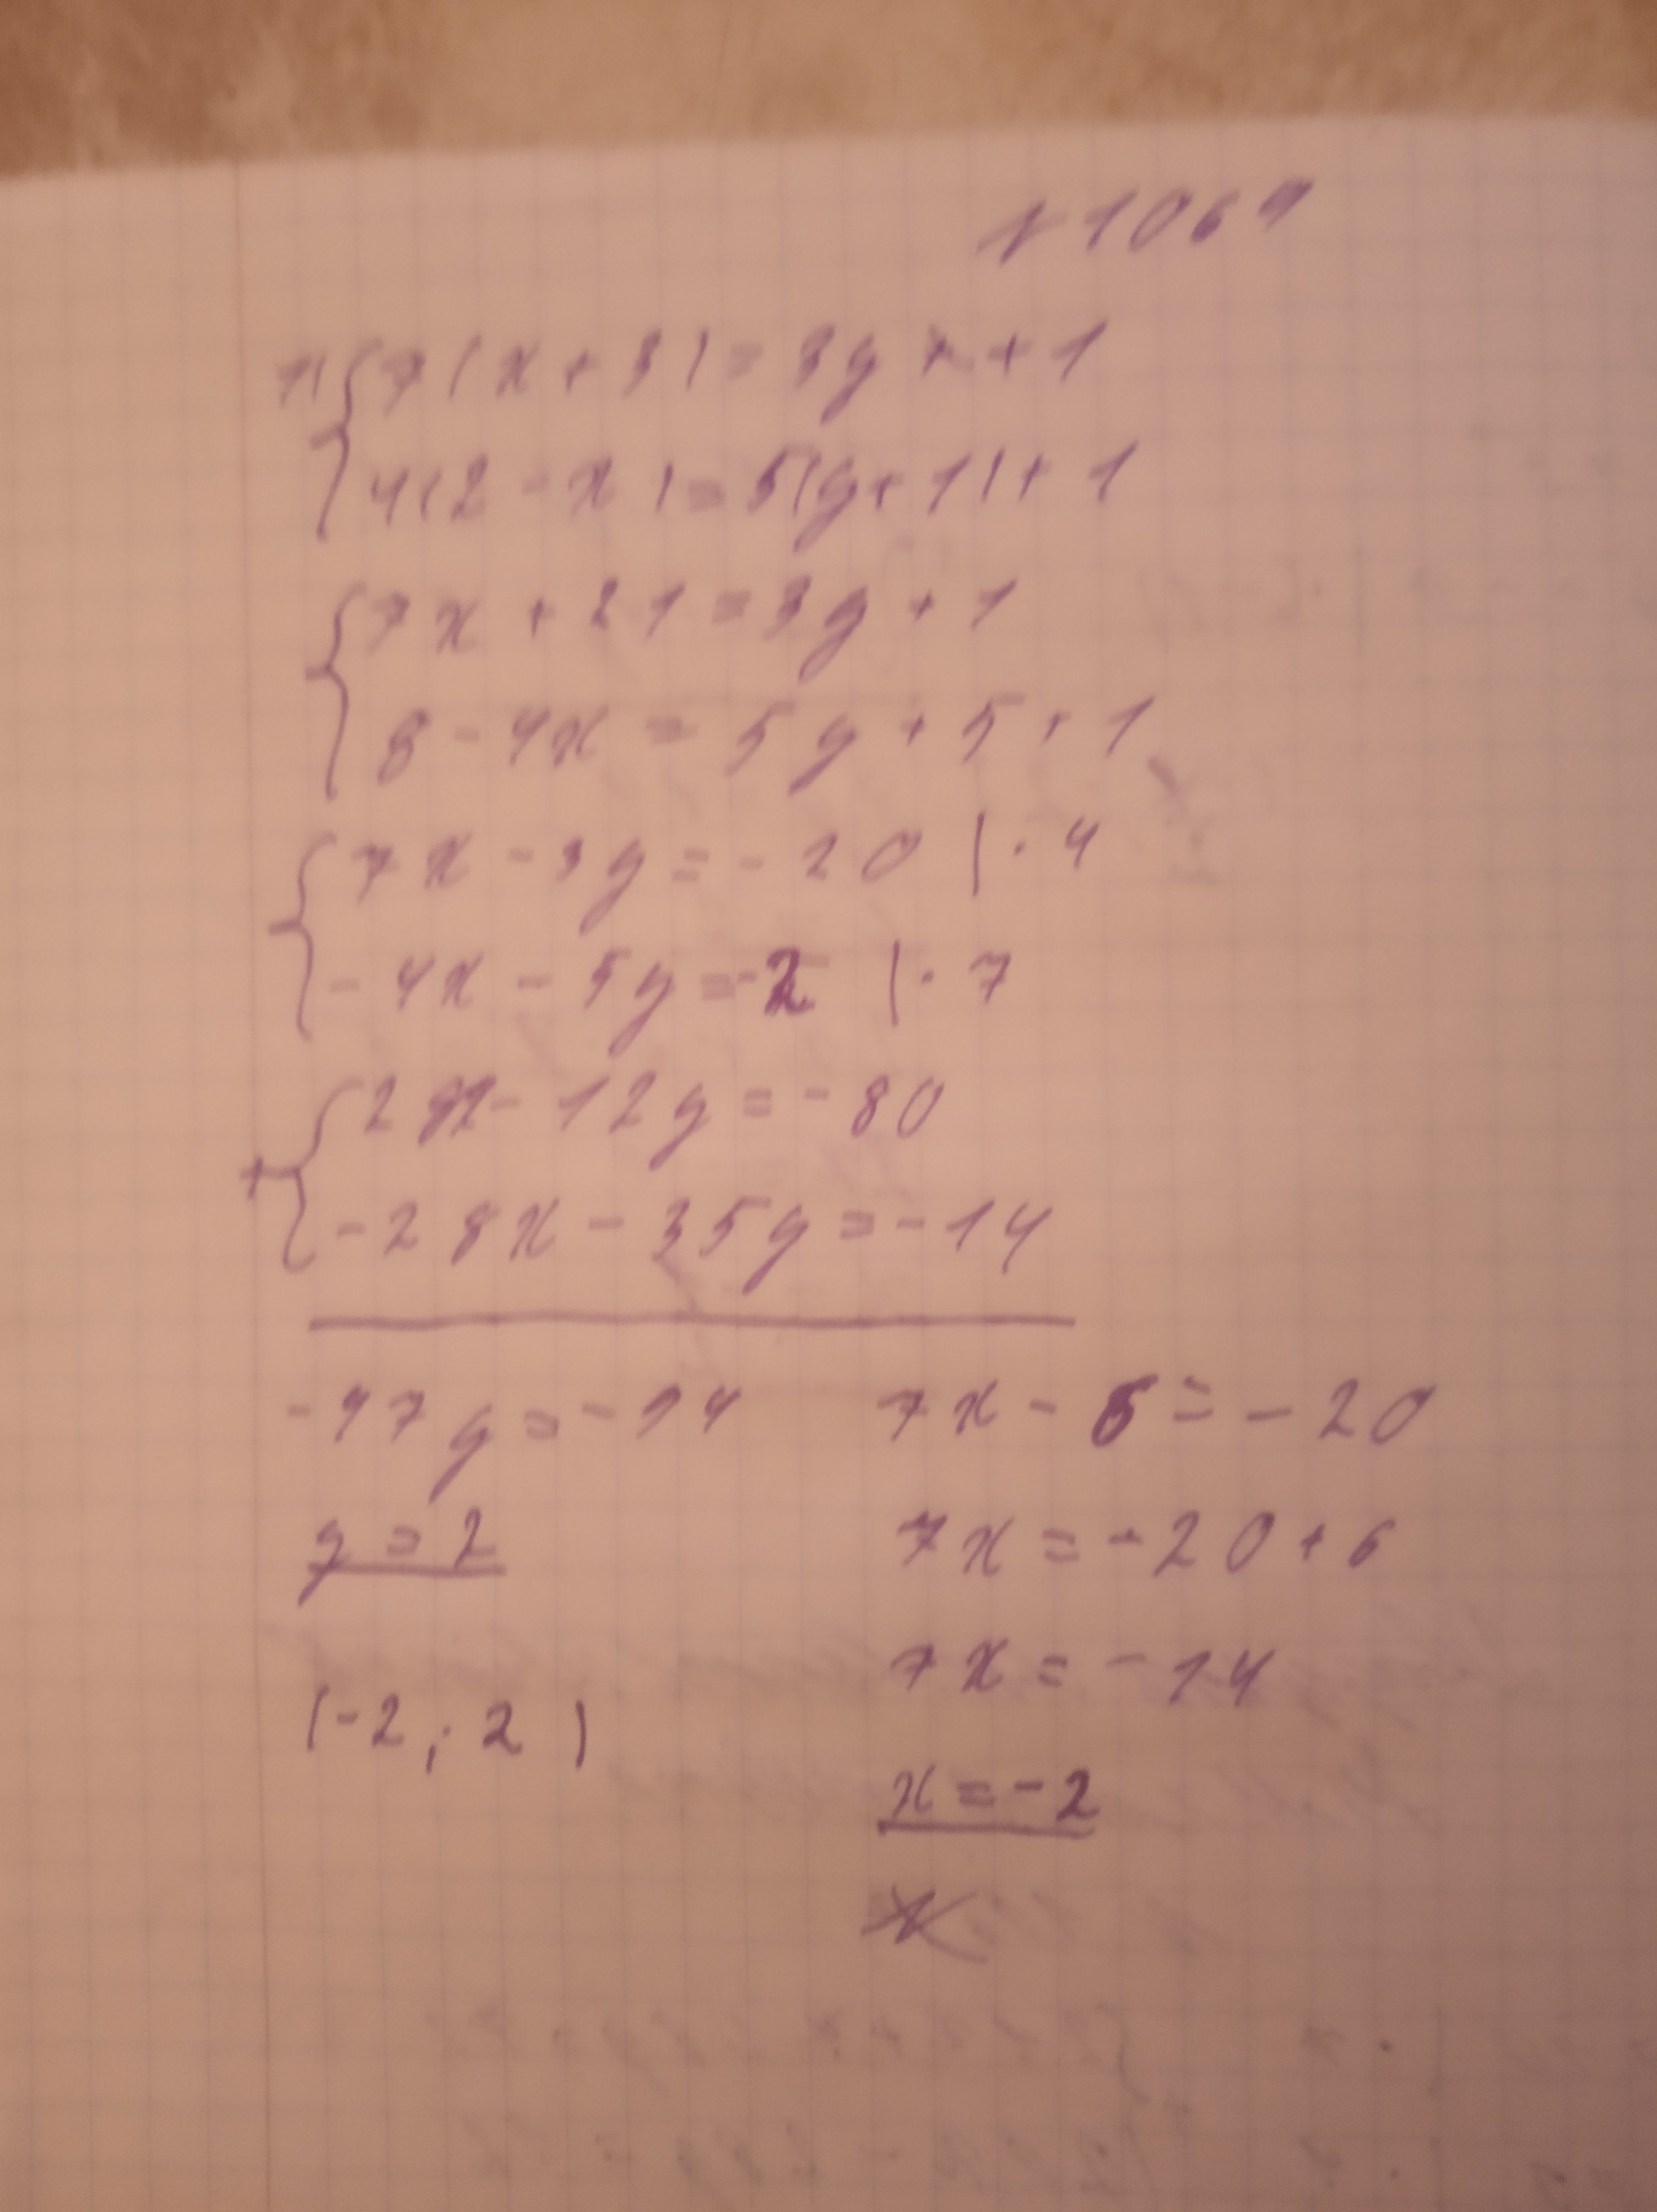 N 1069
1) { 7(x + 3) = 3y + 1
4(2 - x) = 5(y + 1) + 1
{ 7x + 21 = 3y + 1
8 - 4x = 5y + 5 + 1
{ 7x - 3y = - 20 | · 4
- 4x - 5y = -2 | · 7
+ { 28x - 12y = - 80
- 28x - 35y = - 14
- 47y = - 94
y = 2
(-2; 2)
7x - 6 = - 20
7x = - 20 + 6
7x = - 14
x = - 2